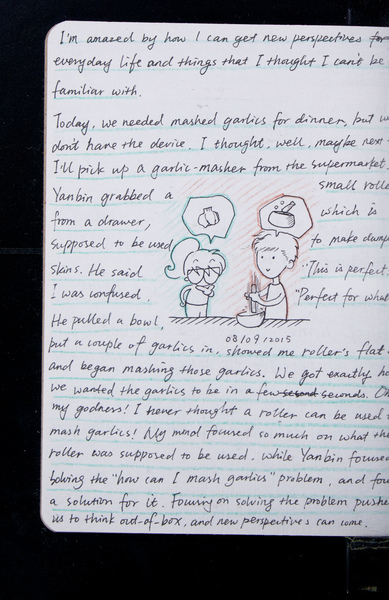 I'm amazed by how I can get new perspectives for
everyday life and things that I thought I can't be
familiar with.
Today, we needed mashed garlics for dinner, but w
don't have the device. I thought, well, maybe next
I'll pick up a garlic-masher from the supermarket.
Yanbin grabbed a small roll
from a drawer, which is
supposed to be used to make dump
skins. He said "This is perfect.
I was confused. "Perfect for wha
He pulled a bowl,
08/09/2015
put a couple of garlics in, showed me roller's flat
and began mashing those garlics. We got exactly ho
we wanted the garlics to be in a few second seconds. Oh
my godness! I never thought a roller can be used t
mash garlics! My mind focused so much on what the
roller was supposed to be used. while Yanbin focused
solving the "how can I mash garlics" problem, and fou
a solution for it. Focusing on solving the problem pushe
us to think out-of-box, and new perspectives can come.